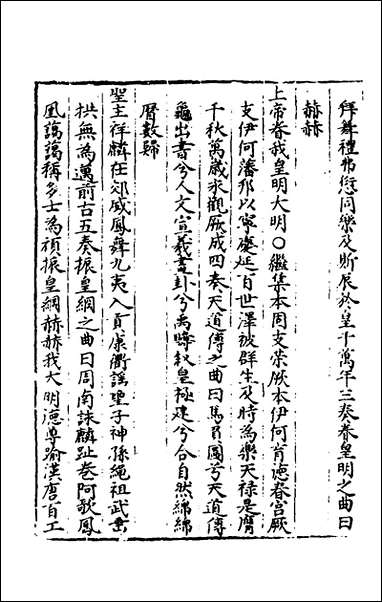 拜舞禮弗愆同樂及斯展於皇千萬年三奏眷皇明之曲曰
赫赫
上帝眷我皇明大明○繼集本周支榮厥本伊何肯德春宮厥
支伊何潘邦以寧慶延百世澤被群生及時為樂天禄是膺
千秋萬歲永觀厥成四奏天道傳之曲曰馬負圖兮天道傳
龜出書兮人文宣羲畫卦兮禹疇叙皇極建兮合自然綿綿
曆數歸
聖主祥麟在郊威鳳舞九夷入貢康衢謠聖子神孫繩祖武垂
拱無為邁前古五奏振皇綱之曲曰周南詠麟趾卷阿歌鳳
凰藹藹稱多士為禎振皇綱赫赫我大明德尊逾漢唐百工